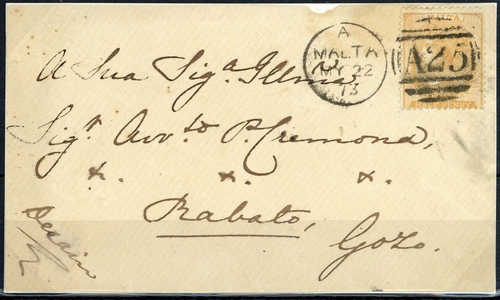 MALTA
A
MALTA
MY 22
73
A25
A Sua Sig.a Illma
Sig.r Avv.to P. Cremona,
&. &. &.
Rabato,
Gozo.